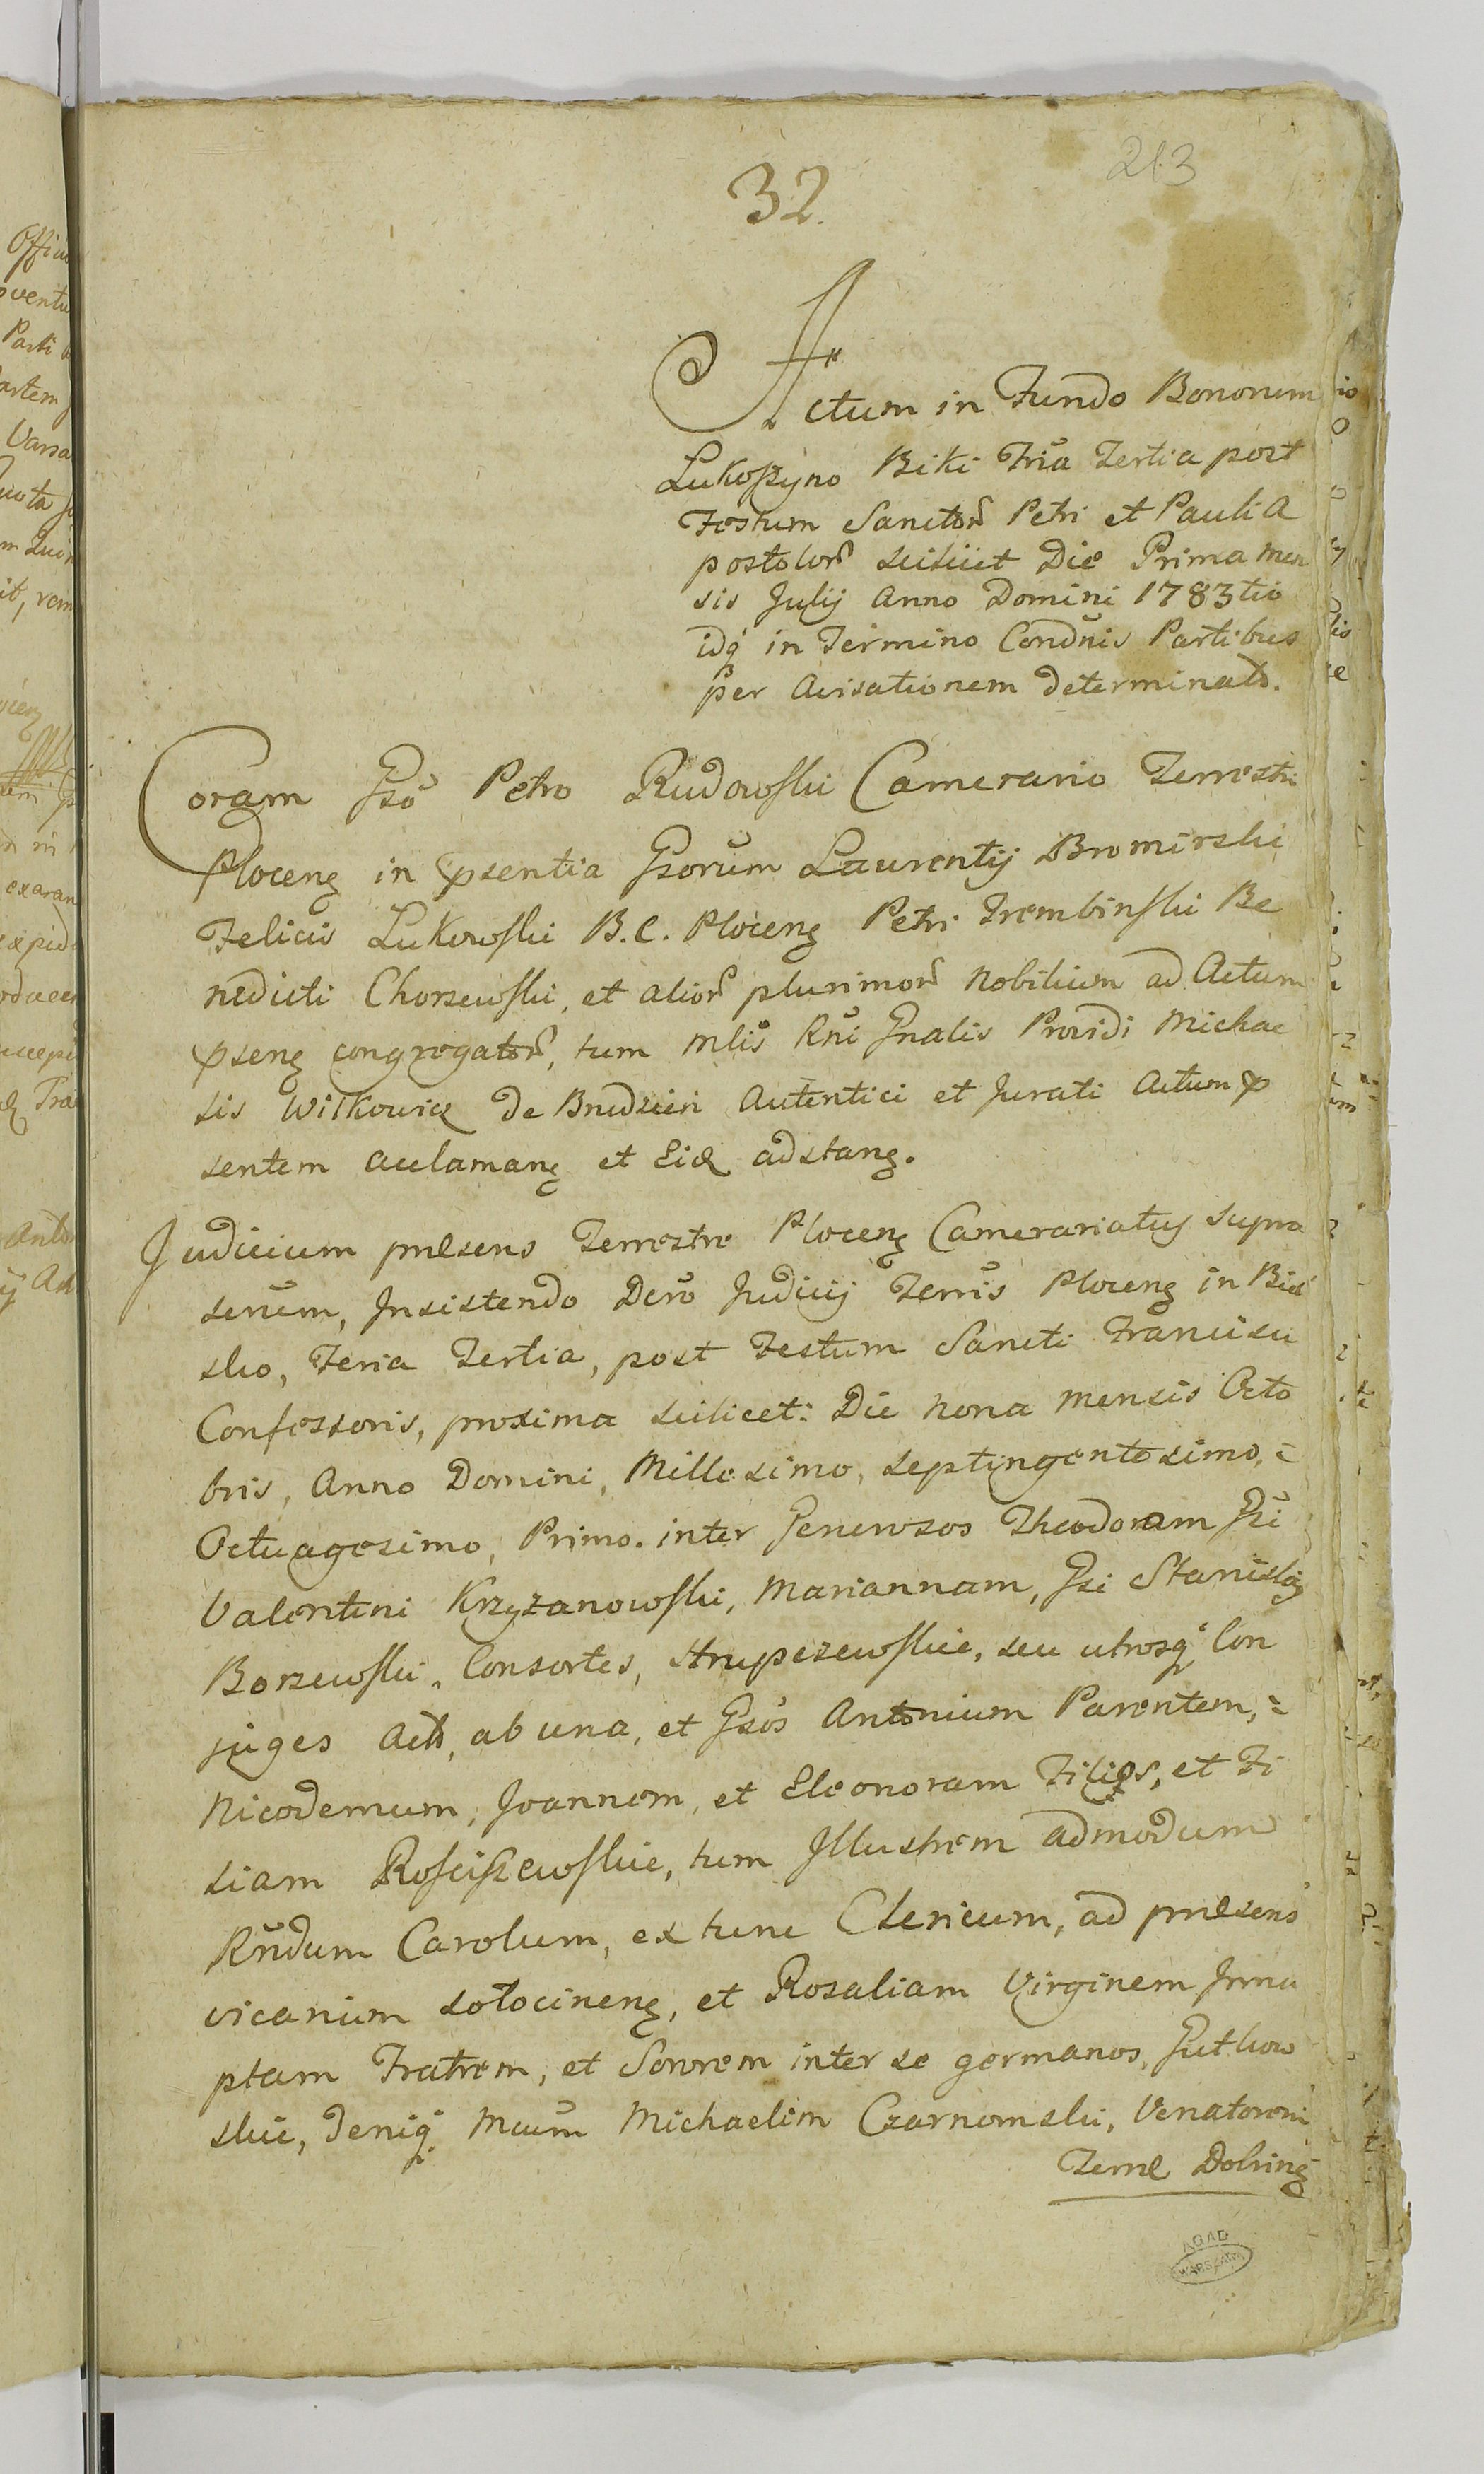 213
32.
Actum in Fundo Bonorum
Lukoszyno Biki Fria Tertia post
Festum Sanctor Petri et Pauli A
postolor scilicet Die Prima Men
sis Julij Anno Domini 1783 tio
idq in Termino Condnis Partibus
per Avisationem determinato.
Coram Gso Petro Rudowski Camerario Terrestri
Plocens in psentia Gsorum Laurentij Bromirski
Felicis Lukowski B. C. Plocens Petri Trembinski Be
nedicti Chorzewski, et alior plurimor Nobilium ad Actum
psens congregator, tum mlis Rni Gnalis Providi Michae
lis Witkowicz de Brudzien Autentici et Jurati Actum p
sentem acclamans et Eid adstans.
Judicium praesens Terrestre Plocens Camerariatus supra
serium, Insistendo Dero Judicij Terris Plocens in Biel
sko, Feria Tertia, post Festum Sancti Francisci
Confessoris, proxima scilicet: Die nona mensis Octo
bris, Anno Domini, Millesimo, septingentesimo,
Octuagesimo, Primo. inter Generosos Theodoram Gsi
Valentini Krzyzanowski, Mariannam, Gsi Stanislai
Borzewski, Consortes, Strupczewskie, seu utrosq Con
juges Act, ab una, et Gsos Antonium Parentem,
Nicodemum, Joannem, et Eleonoram Filios, et Fi
liam Rosciszewskie, tum Illustrem admodum
Rndum Carolum, ex tunc Clericum, ad praesens
vicarium solocinens, et Rosaliam Virginem Innu
ptam Fratrem, et Sororem inter se germanos, Gutkow
skie, deniq Mcum Michaelim Czarnomski, Venatorem
Terrae Dobrinens
AGAD
WARSZAWA